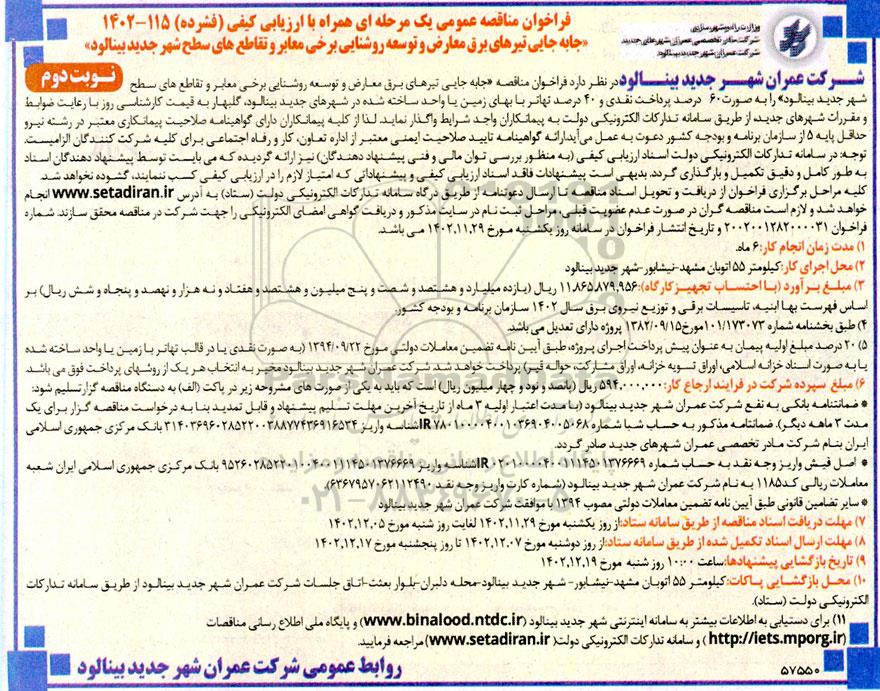 وزارت راه و شهرسازی
شرکت مادر تخصصی عمران شهرهای جدید
شرکت عمران شهر جدید بینالود
فراخوان مناقصه عمومی یک مرحله ای همراه با ارزیابی کیفی (فشرده) ۱۱۵-۱۴۰۲
«جابه جایی تیرهای برق معارض و توسعه روشنایی برخی معابر و تقاطع های سطح شهر جدید بینالود»
نوبت دوم
شرکت عمران شهر جدید بینالود در نظر دارد فراخوان مناقصه «جابه جایی تیرهای برق معارض و توسعه روشنایی برخی معابر و تقاطع های سطح
شهر جدید بینالود» را به صورت ۶۰ درصد پرداخت نقدی و ۴۰ درصد تهاتر با بهای زمین یا واحد ساخته شده در شهرهای جدید بینالود، گلبهار به قیمت کارشناسی روز با رعایت ضوابط
و مقررات شهرهای جدید، از طریق سامانه تدارکات الکترونیکی دولت به پیمانکاران واجد شرایط واگذار نماید. لذا از کلیه پیمانکاران دارای گواهینامه صلاحیت پیمانکاری معتبر در رشته نیرو
حداقل پایه ۵ از سازمان برنامه و بودجه کشور دعوت به عمل می‌آید. ارائه گواهینامه تایید صلاحیت ایمنی معتبر از اداره تعاون، کار و رفاه اجتماعی برای کلیه شرکت کنندگان الزامیست.
توجه: در سامانه تدارکات الکترونیکی دولت اسناد ارزیابی کیفی (به منظور بررسی توان مالی و فنی پیشنهاد دهندگان) نیز ارائه گردیده که می بایست توسط پیشنهاد دهندگان اسناد
به طور کامل و دقیق تکمیل و بارگذاری گردد. بدیهی است پیشنهادات فاقد اسناد ارزیابی کیفی و پیشنهاداتی که امتیاز لازم را در ارزیابی کیفی کسب ننمایند، گشوده نخواهد شد.
کلیه مراحل برگزاری فراخوان از دریافت و تحویل اسناد مناقصه تا ارسال دعوتنامه از طریق درگاه سامانه تدارکات الکترونیکی دولت (ستاد) به آدرس www.setadiran.ir انجام
خواهد شد و لازم است مناقصه گران در صورت عدم عضویت قبلی، مراحل ثبت نام در سایت مذکور و دریافت گواهی امضای الکترونیکی را جهت شرکت در مناقصه محقق سازند. شماره
فراخوان ۲۰۰۲۰۰۱۲۸۲۰۰۰۰۳۱ و تاریخ انتشار فراخوان در سامانه روز یکشنبه مورخ ۱۴۰۲.۱۱.۲۹ می باشد.
۱) مدت زمان انجام کار: ۶ ماه.
۲) محل اجرای کار: کیلومتر ۵۵ اتوبان مشهد-نیشابور-شهر جدید بینالود
۳) مبلغ برآورد (با احتساب تجهیز کارگاه): ۱۱.۸۶۵.۸۷۹.۹۵۶ ریال (یازده میلیارد و هشتصد و شصت و پنج میلیون و هشتصد و هفتاد و نه هزار و نهصد و پنجاه و شش ریال) بر
اساس فهرست بها ابنیه، تاسیسات برقی و توزیع نیروی برق سال ۱۴۰۲ سازمان برنامه و بودجه کشور.
۴) طبق بخشنامه شماره ۱۰۱/۱۷۳۰۷۳ مورخ ۱۳۸۲/۰۹/۱۵ پروژه دارای تعدیل می باشد.
۵) ۲۰ درصد مبلغ اولیه پیمان به عنوان پیش پرداخت اجرای پروژه، طبق آیین نامه تضمین معاملات دولتی مورخ ۱۳۹۴/۰۹/۲۲ (به صورت نقدی یا در قالب تهاتر با زمین یا واحد ساخته شده
یا به صورت اسناد خزانه اسلامی، اوراق تسویه خزانه، اوراق مشارکت، حواله قیر) پرداخت خواهد شد. شرکت عمران شهر جدید بینالود مخیر به انتخاب هر یک از روشهای پرداخت فوق می باشد.
۶) مبلغ سپرده شرکت در فرایند ارجاع کار: ۵۹۴.۰۰۰.۰۰۰ ریال (پانصد و نود و چهار میلیون ریال) است که باید به یکی از صورت های مشروحه زیر در پاکت (الف) به دستگاه مناقصه گزار تسلیم شود:
* ضمانتنامه بانکی به نفع شرکت عمران شهر جدید بینالود (با مدت اعتبار اولیه ۳ ماه از تاریخ آخرین مهلت تسلیم پیشنهاد و قابل تمدید بنا به درخواست مناقصه گزار برای یک
مدت ۳ ماهه دیگر). ضمانتنامه مذکور به حساب شبا شماره IR۷۸۰۱۰۰۰۰۴۰۰۱۰۳۶۹۰۴۰۰۵۰۶۸ شناسه واریز ۳۱۴۰۳۶۹۶۰۲۸۵۲۲۰۰۳۸۸۷۷۴۳۶۹۱۶۵۳۴ بانک مرکزی جمهوری اسلامی
ایران بنام شرکت مادر تخصصی عمران شهرهای جدید صادر گردد.
* اصل فیش واریز وجه نقد به حساب شماره IR۰۲۰۱۰۰۰۰۴۰۰۱۱۱۴۵۰۱۳۷۶۶۶۹ شناسه واریز ۹۵۲۶۰۲۸۵۲۲۰۱۰۰۴۰۰۱۱۱۴۵۰۱۳۷۶۶۶۹ بانک مرکزی جمهوری اسلامی ایران شعبه
معاملات ریالی کد ۱۱۸۵ به نام شرکت عمران شهر جدید بینالود (شماره کارت واریز وجه نقد ۶۳۶۷۹۵۷۰۶۲۱۱۲۴۹۰)
* سایر تضامین قانونی طبق آیین نامه تضمین معاملات دولتی مصوب ۱۳۹۴ با موافقت شرکت عمران شهر جدید بینالود
۷) مهلت دریافت اسناد مناقصه از طریق سامانه ستاد: از روز یکشنبه مورخ ۱۴۰۲.۱۱.۲۹ لغایت روز شنبه مورخ ۱۴۰۲.۱۲.۰۵
۸) مهلت ارسال اسناد تکمیل شده از طریق سامانه ستاد: از روز دوشنبه مورخ ۱۴۰۲.۱۲.۰۷ تا روز پنجشنبه مورخ ۱۴۰۲.۱۲.۱۷
۹) تاریخ بازگشایی پیشنهادها: ساعت ۱۰:۰۰ روز شنبه مورخ ۱۴۰۲.۱۲.۱۹
۱۰) محل بازگشایی پاکات: کیلومتر ۵۵ اتوبان مشهد-نیشابور- شهر جدید بینالود-محله دلبران-بلوار بعثت-اتاق جلسات شرکت عمران شهر جدید بینالود از طریق سامانه تدارکات
الکترونیکی دولت (ستاد).
۱۱) برای دستیابی به اطلاعات بیشتر به سامانه اینترنتی شهر جدید بینالود (www.binalood.ntdc.ir) و پایگاه ملی اطلاع رسانی مناقصات
(http://iets.mporg.ir) و سامانه تدارکات الکترونیکی دولت (www.setadiran.ir) مراجعه فرمایید.
روابط عمومی شرکت عمران شهر جدید بینالود
۵۷۵۵۰